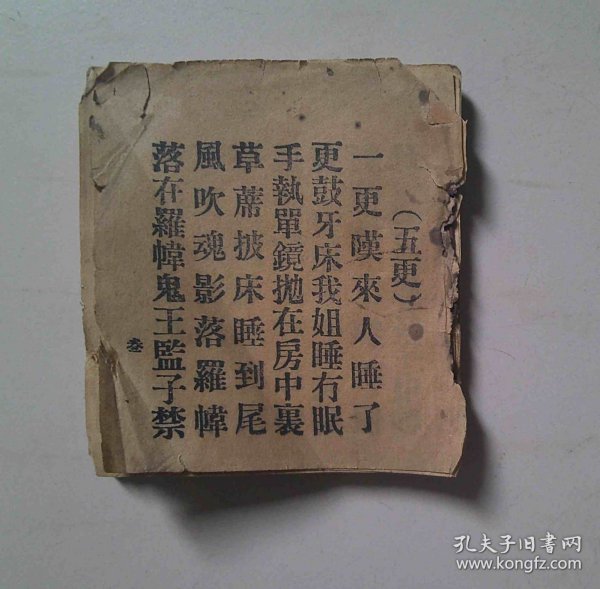 （五更）
一更嘆來人睡了
更鼓牙床我姐睡冇眠
手執單鏡抛在房中裏
草蓆披床睡到尾
風吹魂影落羅幃
落在羅幃鬼王監子禁
叁
孔夫子旧書网
www.kongfz.com